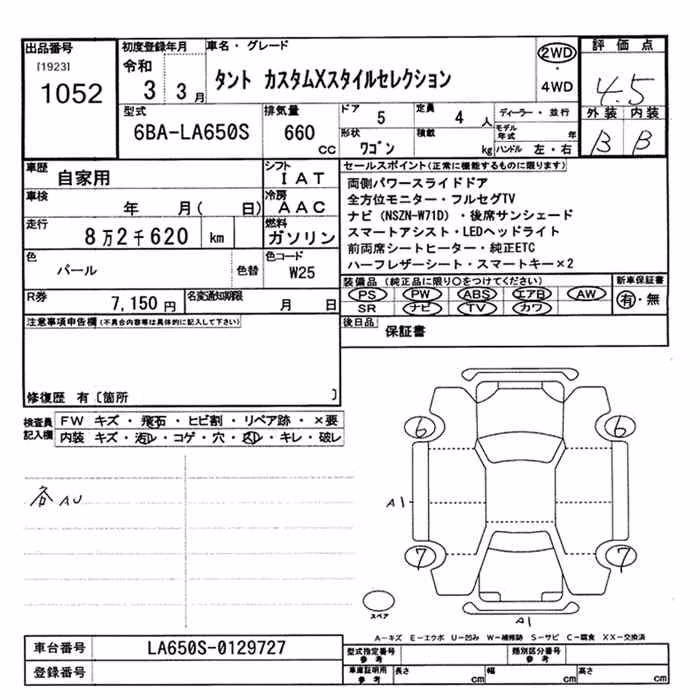 出品番号
[1923]
1052
初度登録年月
令和
3 3月
車名・グレード
タント カスタムXスタイルセレクション
2WD
・
4WD
評価点
4.5
外装 内装
B B
型式
6BA-LA650S
排気量
660
cc
ドア
5
定員
4 人
ディーラー・並行
形状
ワゴン
積載
kg
モデル年式 年
ハンドル 左・右
車歴
自家用
シフト
IAT
車検
年 月( 日)
冷房
AAC
走行
8万2千620 km
燃料
ガソリン
色
パール
色替
色コード
W25
R券
7,150円
名変通知期限
月 日
セールスポイント(正常に機能するものに限ります)
両側パワースライドドア
全方位モニター・フルセグTV
ナビ(NSZN-W71D)・後席サンシェード
スマートアシスト・LEDヘッドライト
前両席シートヒーター・純正ETC
ハーフレザーシート・スマートキー×2
装備品(純正品に限り○をつけてください)
PS PW ABS エアB AW
SR ナビ TV カワ
新車保証書
有・無
後日品
保証書
注意事項申告欄(不具合内容等は具体的に記入して下さい)
修復歴 有〔箇所 〕
検査員
記入欄
FW キズ・飛石・ヒビ割・リペア跡・×要
内装 キズ・汚レ・コゲ・穴・スレ・キレ・破レ
各AU
6 6
A1
7 7
スペア
A1
A-キズ E-エクボ U-凹み W-補修跡 S-サビ C-腐食 XX-交換済
車台番号
LA650S-0129727
登録番号
型式指定番号
参考
類別区分番号
参考
車庫証明用
参考
長さ cm
幅 cm
高さ cm